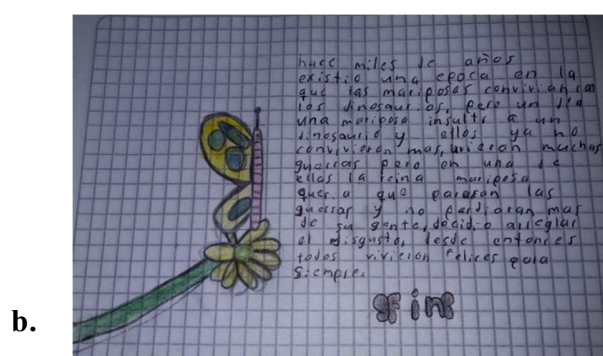 hace miles de años
existio una epoca en la
que las mariposas convivian con
los dinosaurios, pero un dia
una mariposa insulto a un
dinosaurio y ellos ya no
convivieron mas, muchas
guerras pero en una de
ellas la reina mariposa
queria que pararan las
guerras y no perdiaran mas
de su gente, decidio arreglar
el disgusto, desde entonces
todos vivieron felices para
siempre.
fin
b.